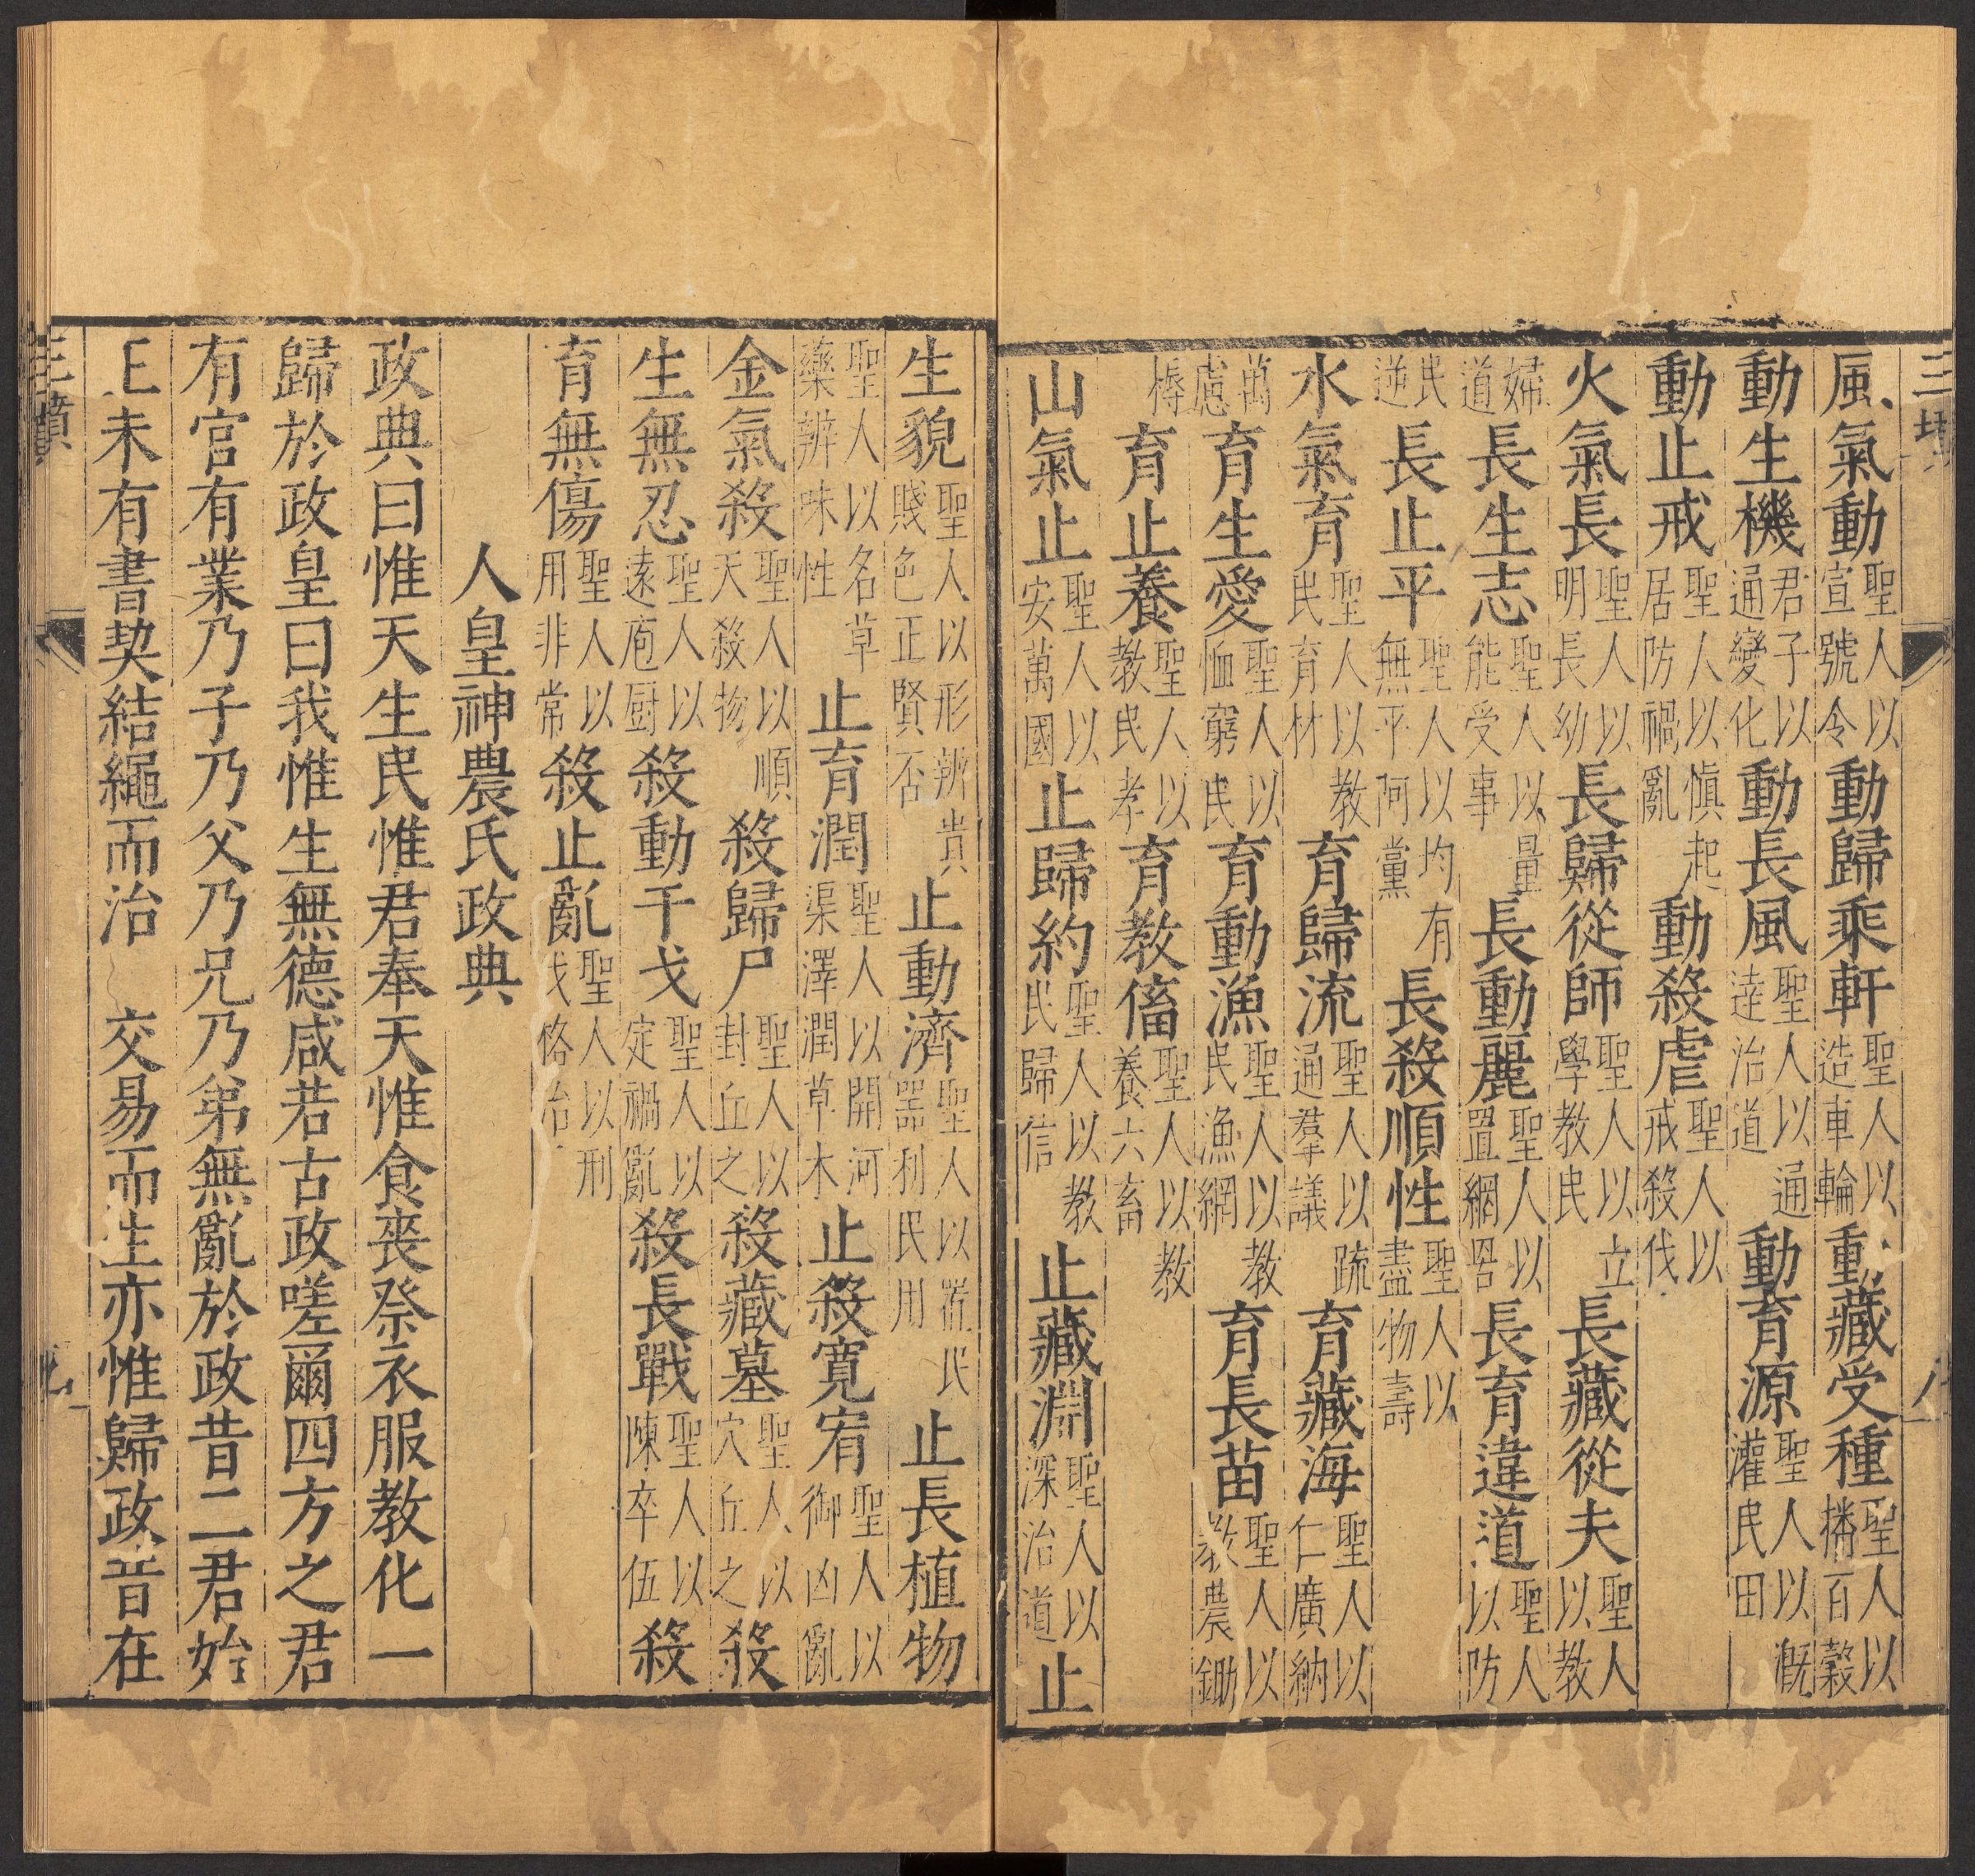 三墳 八
風氣動聖人以宣號令動歸乘軒聖人以造車輪動藏受種聖人以播百穀
動生機君子以通變化動長風聖人以通達治道動育源聖人以溉灌民田
動止戒聖人以慎起居防禍亂動殺虐聖人以戒殺伐
火氣長聖人以明長幼長歸從師聖人以立學教民長藏從夫聖人以教
婦道長生志聖人以量能受事長動麗聖人以置網罟長育違道聖人以防
民逆長止平聖人以均有無平阿黨長殺順性聖人以盡物壽
水氣育聖人以教民育材育歸流聖人以疏通羣議育藏海聖人以仁廣納
萬慮育生愛聖人以恤窮民育動漁聖人以教民漁網育長苗聖人以教農鋤
槈育止養聖人以教民孝育教傗聖人以教養六畜
山氣止聖人以安萬國止歸約聖人以教民歸信止藏淵聖人以深治道止
生貌聖人以形辨貴賤色正賢否止動濟聖人以濟民器利民用止長植物
聖人以名草藥辨味性止育潤聖人以開河渠澤潤草木止殺寬宥聖人以御凶亂
金氣殺聖人以順天殺物殺歸尸聖人以封丘之殺藏墓聖人以穴丘之殺
生無忍聖人以遠庖厨殺動干戈聖人以定禍亂殺長戰聖人以陳卒伍殺
育無傷聖人以用非常殺止亂聖人以刑戈格治
人皇神農氏政典
政典曰惟天生民惟君奉天惟食喪祭衣服教化一
歸於政皇曰我惟生無德咸若古政嗟爾四方之君
有官有業乃子乃父乃兄乃弟無亂於政昔二君始
王未有書契結繩而治交易而生亦惟歸政昔在
三墳 九